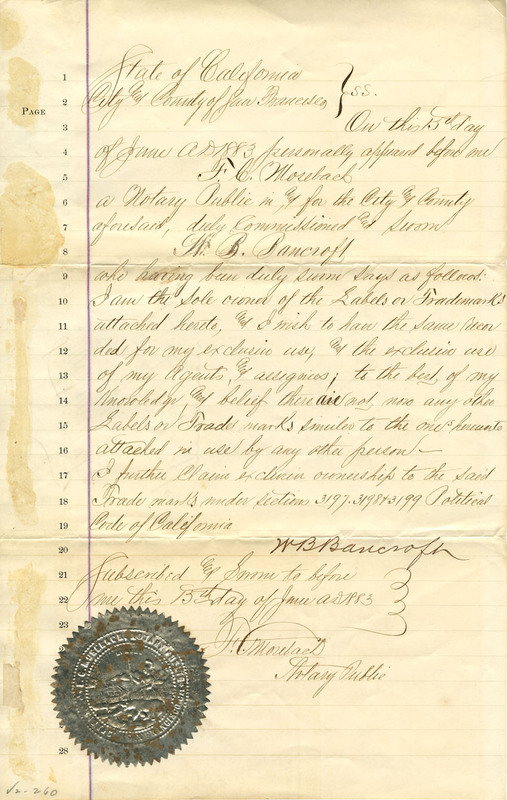 PAGE
1 State of California
2 City & County of San Francisco } SS.
3 On this 15th day
4 of June A.D. 1883 personally appeared before me
5 F. C. Mosebach
6 a Notary Public in & for the City & County
7 aforesaid, duly Commissioned & Sworn
8 W. B. Bancroft
9 who having been duly sworn says as follows:
10 I am the sole owner of the Labels or Trademarks
11 attached hereto, & I wish to have the same recor
12 ded for my exclusive use, & the exclusive use
13 of my Agents, & assignees; to the best, of my
14 Knowledge & belief there are not, now any other
15 Labels or Trade marks similar to the ones hereunto
16 attached in use by any other person —
17 I further Claim exclusive ownership to the said
18 Trade marks under sections 3197. 3198 & 3199 Political
19 Code of California
20 W B Bancroft
21 Subscribed & Sworn to before
22 me this 15th day of June A.D. 1883
23
F. C. Mosebach
Notary Public
28
V2-260